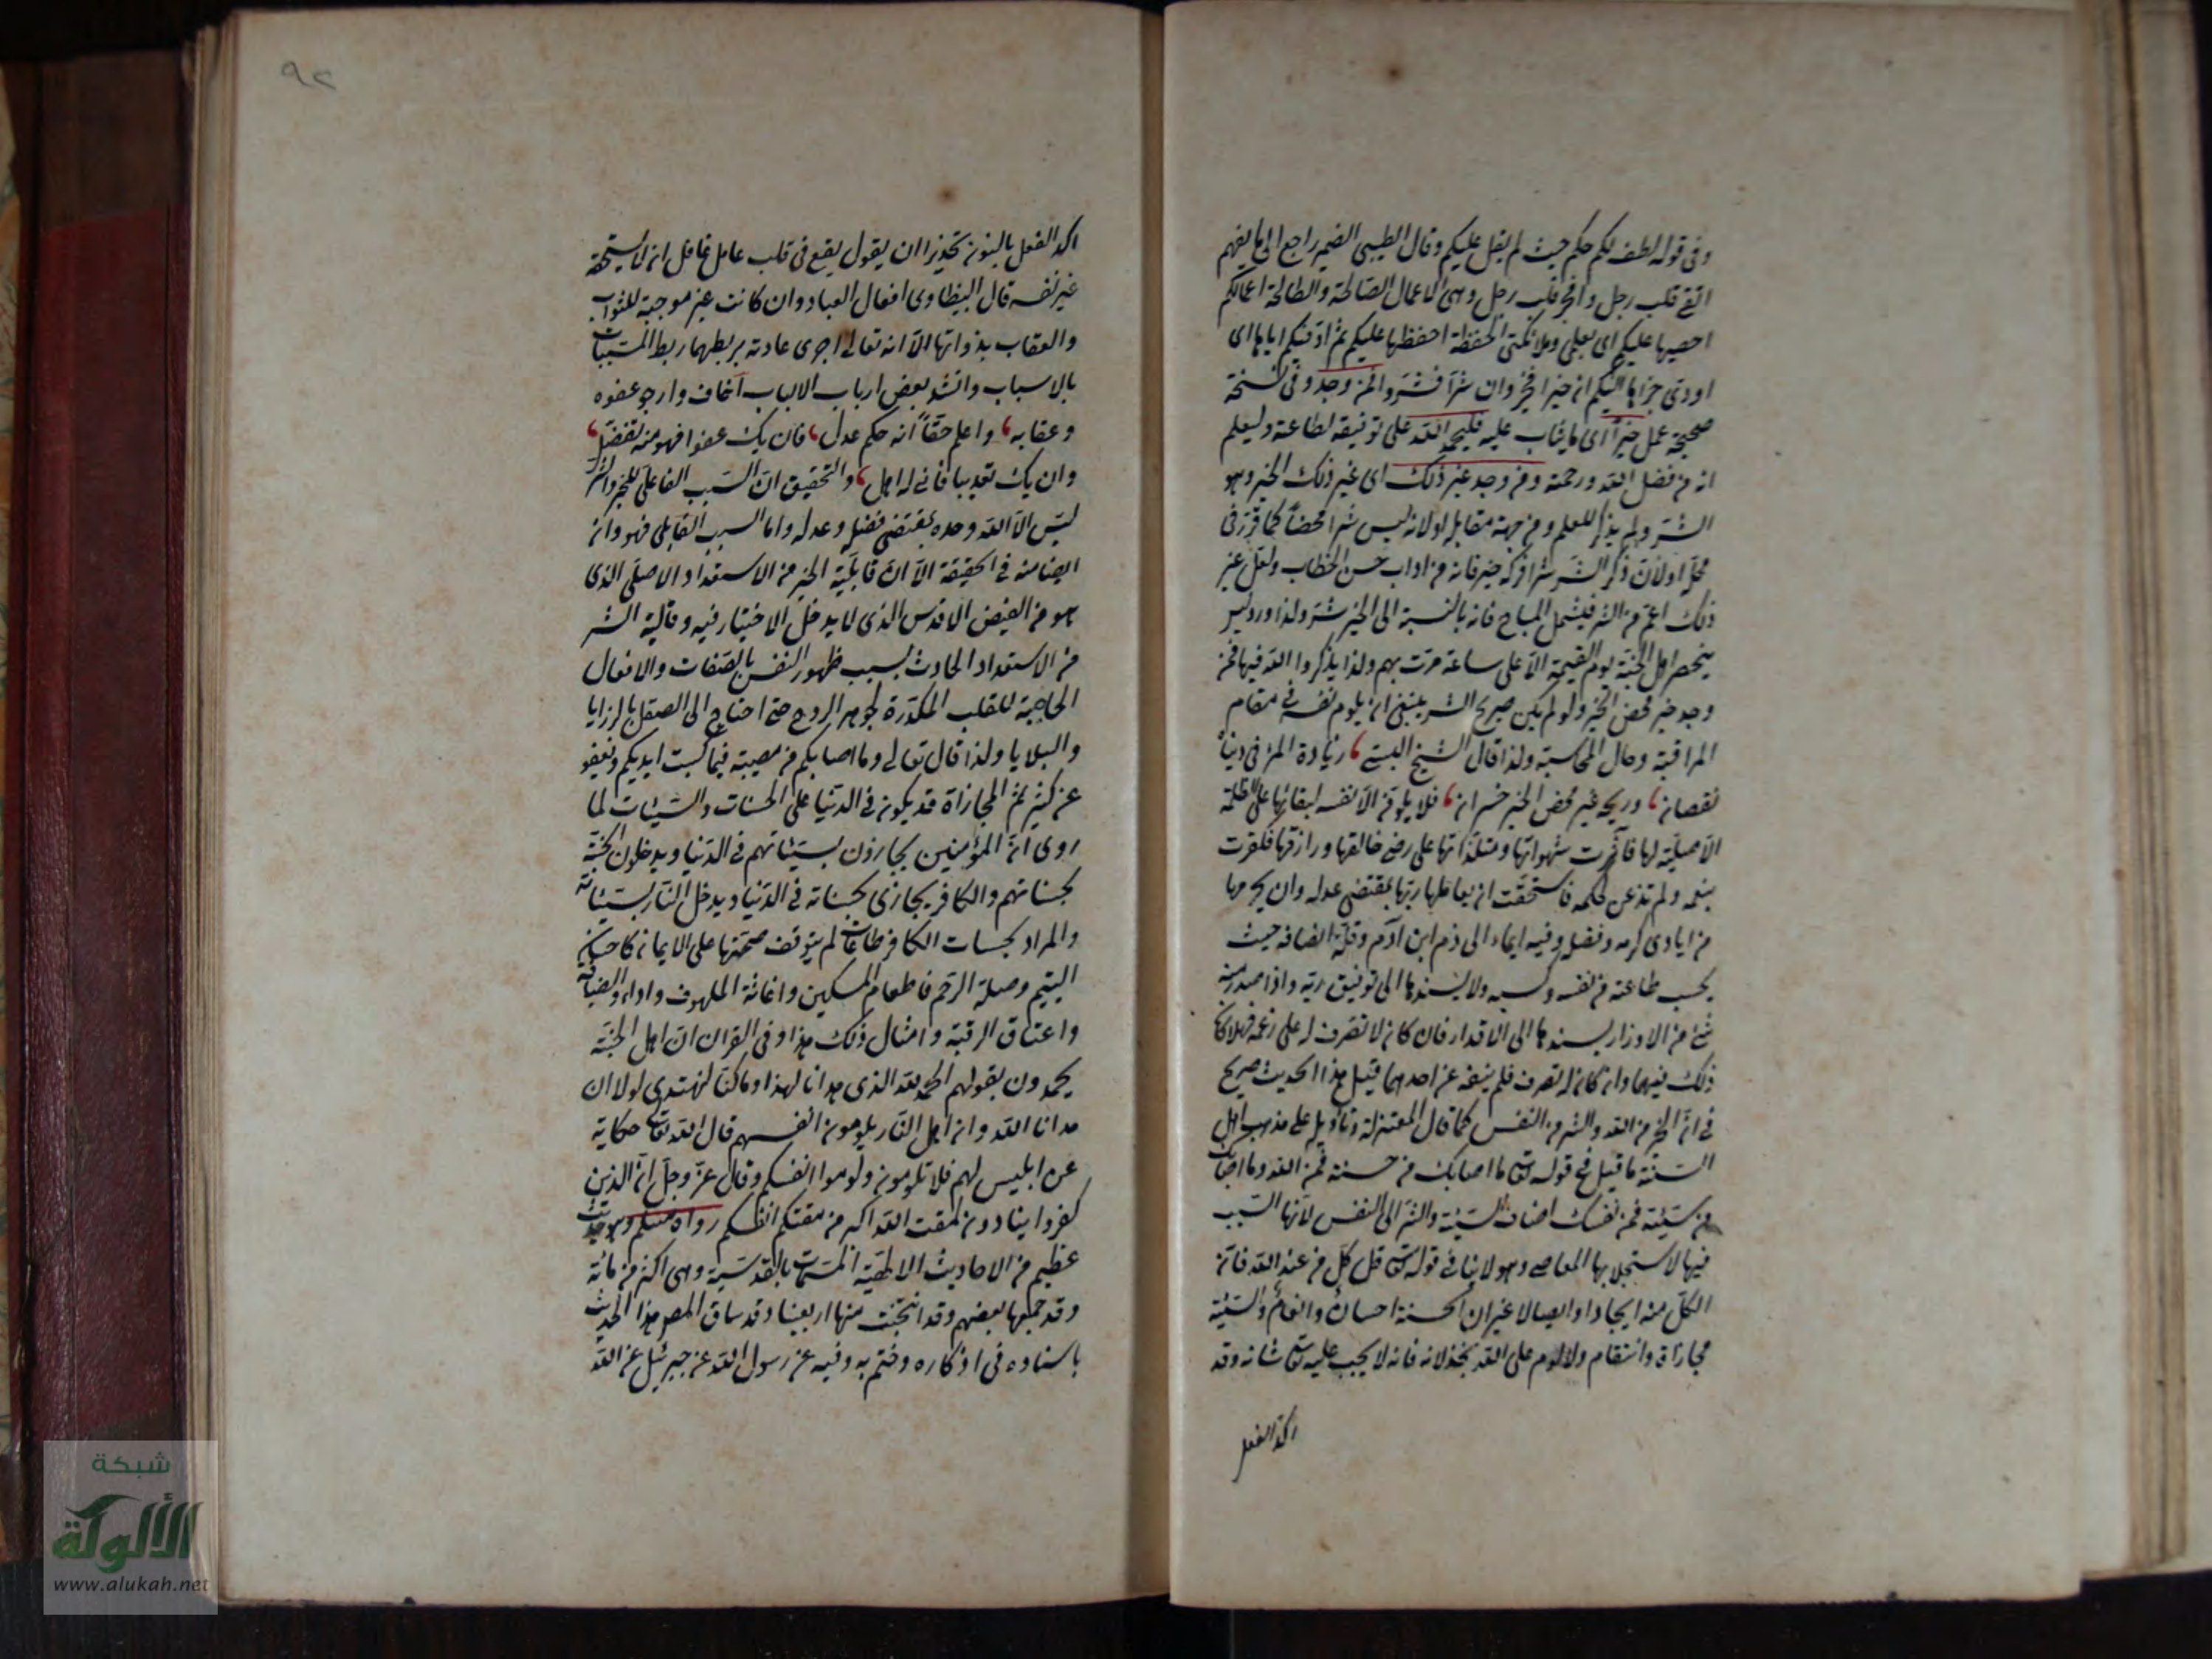 وفى قوله لطف لكم حكم حيث لم يقل عليكم وقال الطيبى الضمير راجع الى ما يفهم
اتقى قلب رجل وافجر قلب رجل وهى الاعمال الصالحة والطالحة اعمالكم
احصيها عليكم اى بعلمى وملائكتى الحفظة احفظها عليكم ثم اوفيكم اياها اى
اودى جزاها اليكم ان خيرا فخير وان شرا فشر وافمن وجد وفى نسخة
صحيحة عمل خيرا اى ما يثاب عليه فليحمد الله على توفيقه لطاعته وليعلم
انه من فضل الله ورحمته ومن وجد غير ذلك اى غير ذلك الخير وهو
الشر ولم يذكر للعلم ومن جهة مقابله اولانه ليس شرا محضا كما قرر فى
محله اولان ذكر الشر شر اتركه خير فانه من اداب حسن الخطاب ولعل غير
ذلك اعم من الشر فيشمل المباح فانه بالنسبة الى الخير شر ولذا ورد ليس
يتحصر اهل الجنة يوم القيمة الا على ساعة مرت بهم ولذا يذكروا الله فيها فمن
وجد خير محض الخير ولو لم يكن صريح الشر ينبغى ان يلوم نفسه فى مقام
المراقبة وحال المحاسبة ولذا قال الشيخ البستى زيادة المرء فى دنياه
نقصان وربحه غير محض الخير خسران فلا يلومن الا نفسه لبقائها على الظلمة
الاصلية لها فآثرت شهواتها ومستلذاتها على رضى خالقها ورازقها فكفرت
بنعمه ولم تذعن لحكمه فاستحقت ان يعاملها ربها بمقتضى عدله وان يحرمها
من ايادى كرمه وفضله وفيه ايماء الى ذم ابن آدم وقلة انصافه حيث
يحسب طاعته من نفسه وكسبه ولا يسندها الى توفيق ربه واذا صدر منه
شئ من الاوزار يسندها الى الاقدار فان كان لا تصرف له على زعمه فهلا كان
ذلك فيهما وان كان له تصرف فلم ينفه عن احدهما قيل هذا الحديث صريح
فى ان الخير من الله والشر من النفس كما قال المعتزلة وتاويله على مذهب اهل
السنة ما قيل فى قوله تعالى ما اصابك من حسنة فمن الله وما اصابك
من سيئة فمن نفسك اضاف السيئة والشر الى النفس لانها السبب
فيها لاستجلابها المعاصى وهو لا ينافى قوله تعالى قل كل من عند الله فان
الكل منه ايجادا وايصالا غير ان الحسنة احسان وانعام والسيئة
مجازاة وانتقام ولا لوم على الله بخذلانه فانه لا يجب عليه تعالى شانه وقد
اكد الفعل
٩٢
اكد الفعل بالنون تحذيرا ان يقول يقع فى قلب عامل غافل ان لا يستحقه
غير نفسه قال البيظاوى افعال العباد وان كانت غير موجبة للثواب
والعقاب بذواتها الا انه تعالى اجرى عادته بربطهما ربط المسببات
بالاسباب وانشد بعض ارباب الالباب اخاف وارجو عفوه
وعقابه واعلم حقا انه حكم عدل فان يك عفوا فهو منه تفضل
وان يك تعذيبا فانى له اهل والتحقيق ان السبب الفاعلى للخير والشر
ليس الا الله وحده بمقتضى فضله وعدله واما السبب القابلى فهو وان
ايضا منه فى الحقيقة الا ان قابلية الخير من الاستعداد الاصلى الذى
هو من الفيض الاقدس الذى لا يدخل الاختيار فيه وقابلية الشر
من الاستعداد الحادث بسبب ظهور النفس بالصفات والافعال
الحاجبة للقلب المكدرة لجوهر الروح حتى احتاج الى الصقل بالرزايا
والبلايا ولذا قال تعالى وما اصابكم من مصيبة فبما كسبت ايديكم ويعفو
عن كثير ثم المجازاة قد يكون فى الدنيا على الحسنات والسيئات لما
روى ان المؤمنين يجازون بسيئاتهم فى الدنيا ويدخلون الجنة
بحسناتهم والكافر يجازى بحسناته فى الدنيا ويدخل النار بسيئاته
والمراد بحسنات الكافر طاعات لم يتوقف صحتها على الايمان كاحسان
اليتيم وصلة الرحم فاطعام المسكين واغاثة الملهوف واداء والضيافة
واعتاق الرقبة وامثال ذلك هذا وفى القران ان اهل الجنة
يحمدون بقولهم الحمد لله الذى هدانا لهذا وما كنا لنهتدى لولا ان
هدانا الله وان اهل النار يلومون انفسهم قال الله تعالى حكاية
عن ابليس لهم فلا تلومونى ولوموا انفسكم وقال عز وجل ان الذين
كفروا ينادون لمقت الله اكبر من مقتكم انفسكم رواه مسلم وهو حديث
عظيم من الاحاديث الالهية المسمات بالقدسية وهى اكثر من مائة
وقد جمعها بعضهم وقد انتخبت منها اربعينا وقد ساق المص هذا الحديث
باسناده فى اذكاره وختم به وفيه عن رسول الله عن جبرئيل عن الله
شبكة
الألوكة
www.alukah.net